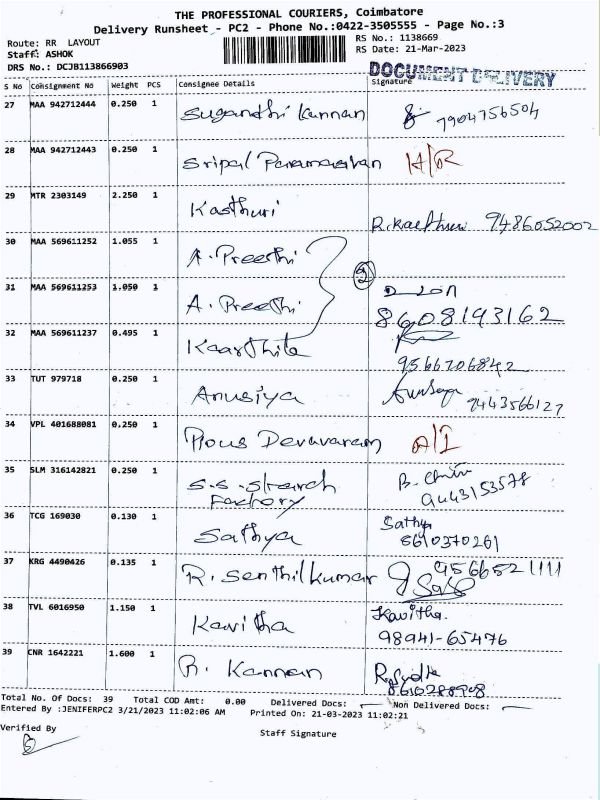 THE PROFESSIONAL COURIERS, Coimbatore
Delivery Runsheet - PC2 - Phone No.:0422-3505555 - Page No.:3
Route: RR LAYOUT RS No.: 1138669
Staff: ASHOK RS Date: 21-Mar-2023
DRS No.: DCJB113866903
DOCUMENT DELIVERY
S No Consignment No Weight PCS Consignee Details Signature
27 MAA 942712444 0.250 1 Sugandhi Kannan 7904756504
28 MAA 942712443 0.250 1 Sripal Paramasivan
29 MTR 2303149 2.250 1 Kasthuri
9486052002
30 MAA 569611252 1.055 1 A. Preethi
2
31 MAA 569611253 1.050 1 A. Preethi
8608193162
32 MAA 569611237 0.495 1 Kaarthika
9566706842
33 TUT 979718 0.250 1 Anusiya 9443566127
34 VPL 401688081 0.250 1 Pious Devavaram
35 SLM 316142821 0.250 1 S.S. Starch
Factory 9443153578
36 TCG 169030 0.130 1 Sathya Sathya
8610370261
37 KRG 4490426 0.135 1 R. Senthilkumar 9566521111
38 TVL 6016950 1.150 1 Kavitha Kavitha.
98941-65476
39 CNR 1642221 1.600 1 R. Kannan
8610288908
Total No. Of Docs: 39 Total COD Amt: 0.00 Delivered Docs: Non Delivered Docs:
Entered By :JENIFERPC2 3/21/2023 11:02:06 AM Printed On: 21-03-2023 11:02:21
Verified By Staff Signature